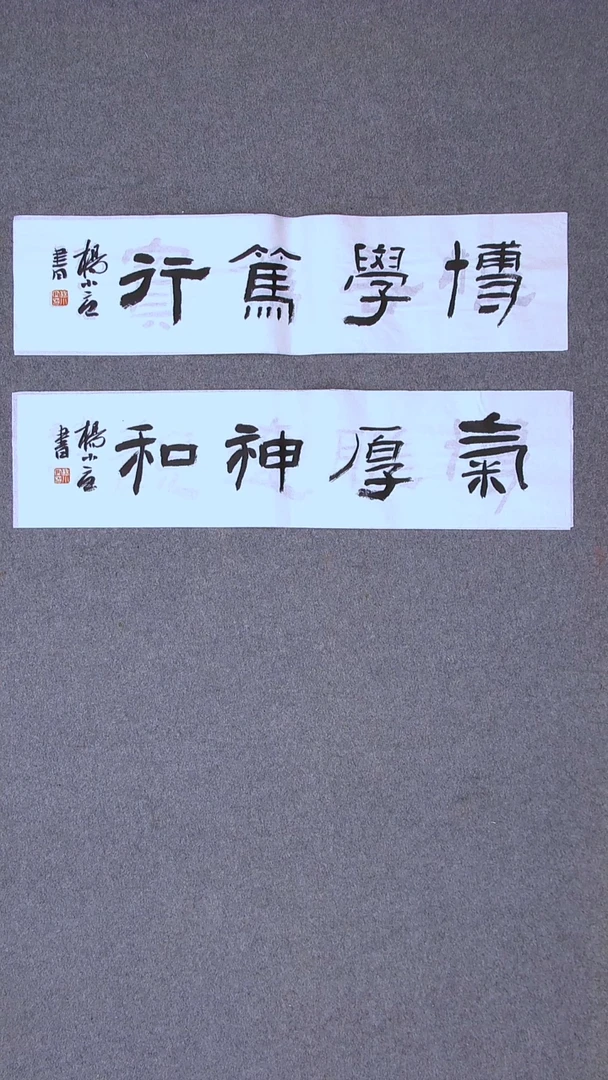 博學篤行
楊小
書
氣厚神和
楊小
書